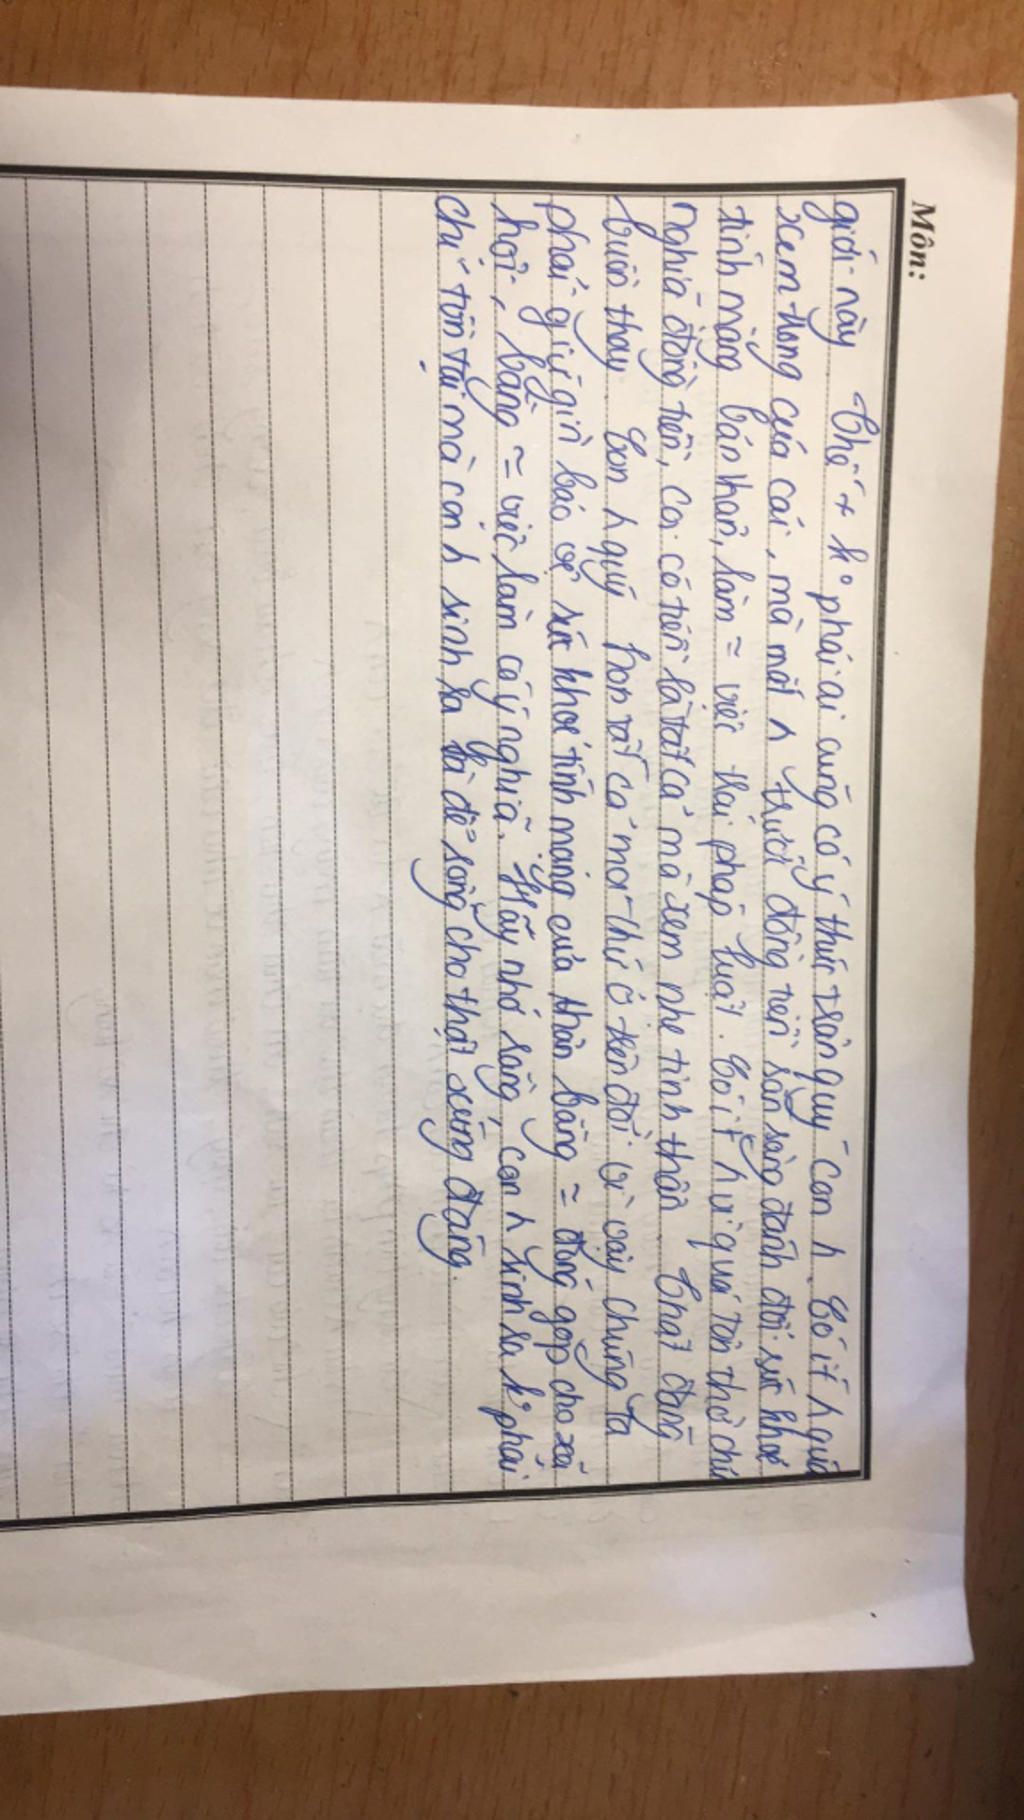 Môn:
giới này Thế + k° phải ai cũng có ý thức trân quý con ng. Có ít ng quá
xem trọng của cải, mà mất ng trước đồng tiền sẵn sàng đánh đổi sức khoẻ
tính mạng bán thân, làm ≈ việc trái pháp luật. Có ít ng vì quá tôn thờ chủ
nghĩa đồng tiền, coi có tiền là tất cả mà xem nhẹ tinh thần. Thật đáng
buồn thay. Con ng quý hơn tất cả mọi thứ ở trên đời vì vậy chúng ta
phải giữ gìn bảo vệ sức khoẻ tính mạng của thân bằng ≈ đóng góp cho xã
hội, bằng ≈ việc làm có ý nghĩa. Hãy nhớ rằng, con ng sinh ra k° phải
chỉ tồn tại mà con ng sinh ra là để sống cho thật xứng đáng.